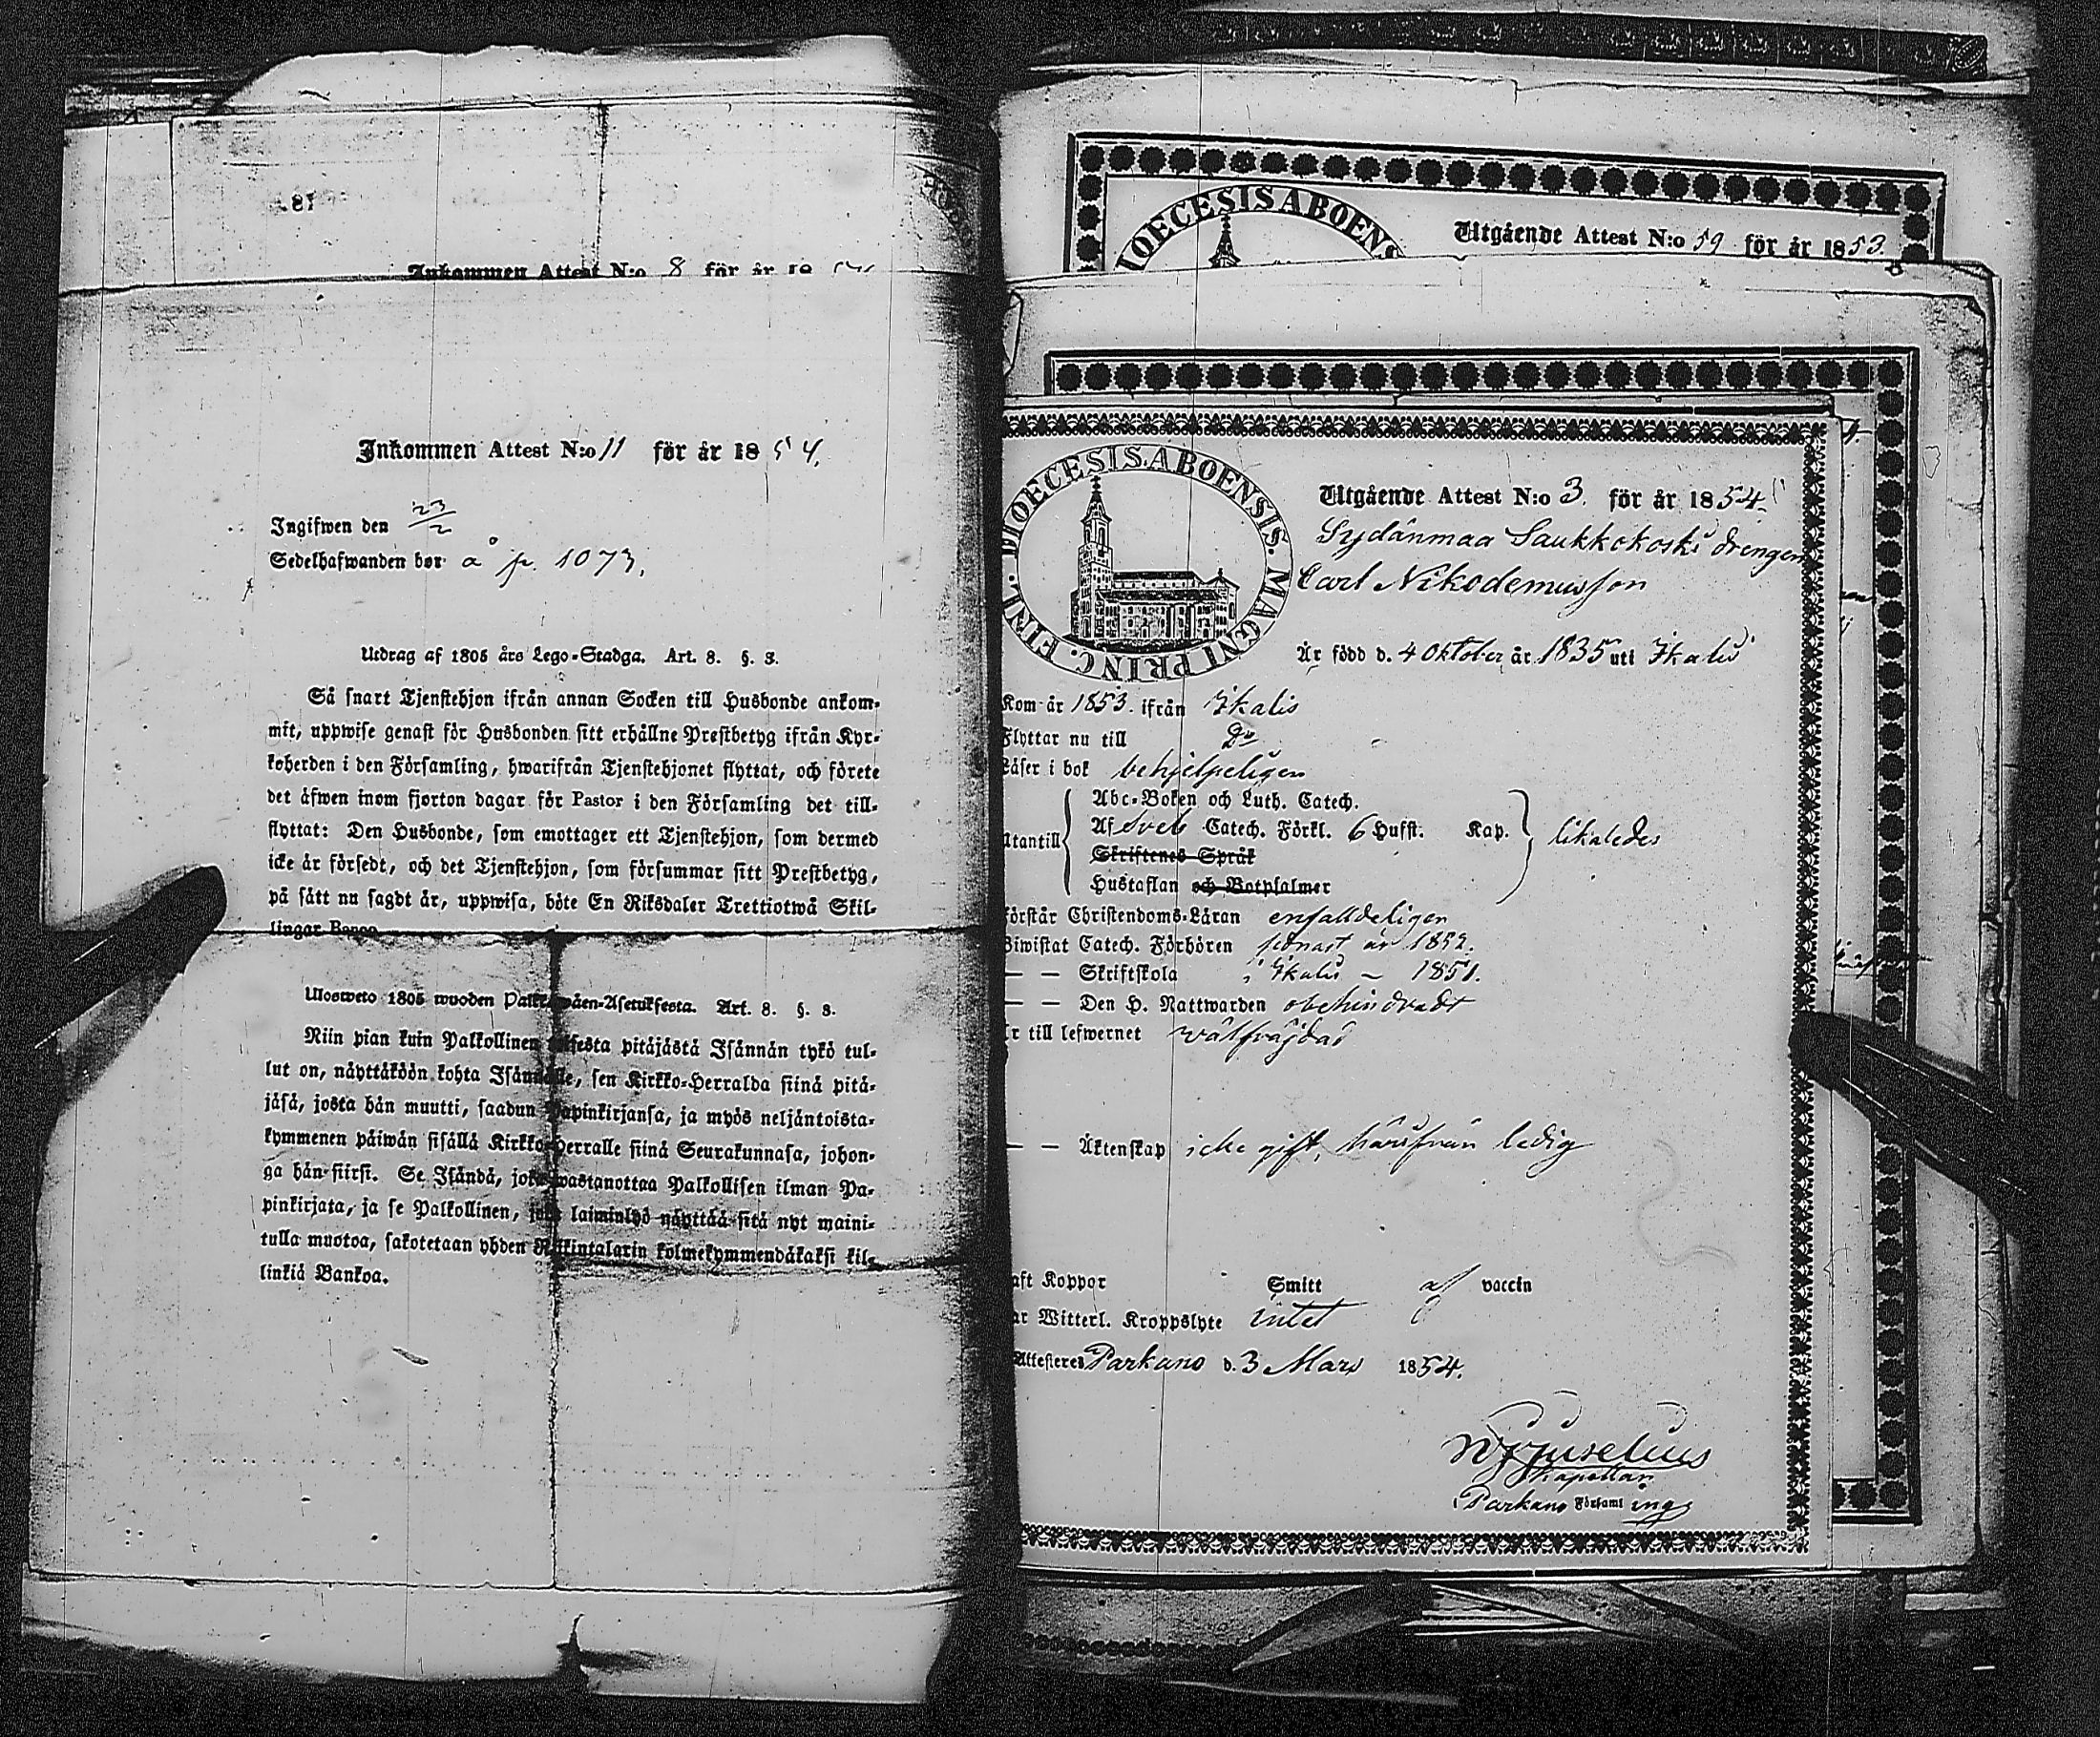 81
Inkommen Attest N:o 8 för år 18
Inkommen Attest N:o 11 för år 1854.
Ingifwen den 23/2
Sedelhafwanden bor å p. 1073.
Utdrag af 1805 års Lego-Stadga. Art. 8. §. 3.
Så snart Tjenstehjon ifrån annan Socken till Husbonde ankom-
mit, uppwise genast för Husbonden sitt erhållne Prestbetyg ifrån Kyr-
koherden i den Församling, hwarifrån Tjenstehjonet flyttat, och förete
det äfwen inom fjorton dagar för Pastor i den Församling det till-
flyttat: Den Husbonde, som emottager ett Tjenstehjon, som dermed
icke är försedt, och det Tjenstehjon, som försummar sitt Prestbetyg,
på sätt nu sagdt är, uppwisa, böte En Riksdaler Trettiotwå Skil-
lingar Banco
Ulosweto 1805 wuoden Palkkawäen-Asetuksesta. Art. 8. §. 3.
Niin pian kuin Palkollinen toisesta pitäjästä Isännän tykö tul-
lut on, näyttäköön kohta Isännälle, sen Kirkko-Herralda siinä pitä-
jäsä, josta hän muutti, saadun Papinkirjansa, ja myös neljäntoista-
kymmenen päiwän sisällä Kirkko-Herralle siinä Seurakunnasa, johon-
ga hän siirsi. Se Isändä, joka wastanottaa Palkollisen ilman Pa-
pinkirjata, ja se Palkollinen, joka laiminlyö näyttää sitä nyt maini-
tulla muotoa, sakotetaan yhden Riikintalarin kolmekymmendäkaksi kil-
linkiä Bankoa.
DIOECESIS ABOENS
Utgående Attest N:o 59 för år 1853.
DIOECESIS ABOENSIS. MAGNI PRINC. FINL.
Utgående Attest N:o 3. för år 1854.
Sydänmaa Saukkokoski drengen
Carl Nikodemusson
Är född d. 4 Oktober år 1835 uti Ikalis
Kom år 1853. ifrån Ikalis
Flyttar nu till Do
Läser i bok behjelpeligen
Abc-Boken och Luth. Catech.
Utantill Af Sveb Catech. Förkl. 6 Hufst. Kap. likaledes
Skriftenes Språk
Hustaflan och Botpsalmer
Förstår Christendoms-Läran enfaldeligen
Biwistat Catech. Förhören senast år 1852.
— — Skriftskola i Ikalis – 1851.
— — Den H. Nattwarden obehindradt
Är till lefwernet välfräjdad
— — Äktenskap icke gift, härifrån ledig
aft Koppor Smitt af vaccin
ar Witterl. Kroppslyte intet
Attesteres Parkano d. 3 Mars 1854.
Kapellan
i Parkano Församl ing